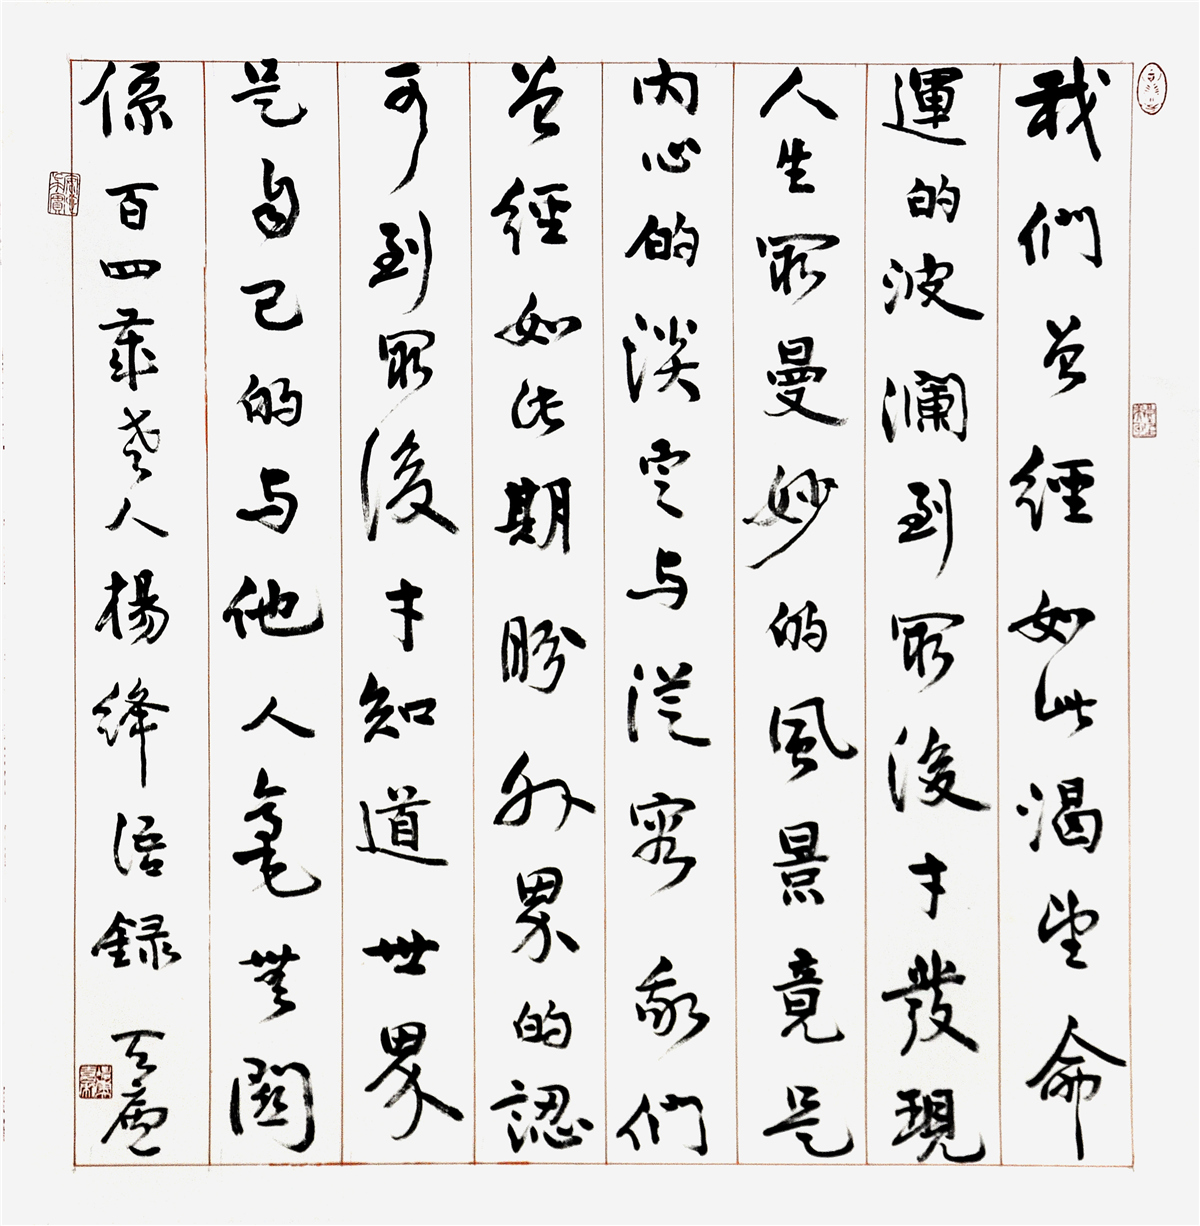 我們曾經如此渴望命
運的波瀾到最後才發現
人生最曼妙的風景竟是
內心的淡定与從容我們
曾經如此期盼外界的認
可到最後才知道世界
是自己的与他人毫無關
係百四歲老人楊絳語録